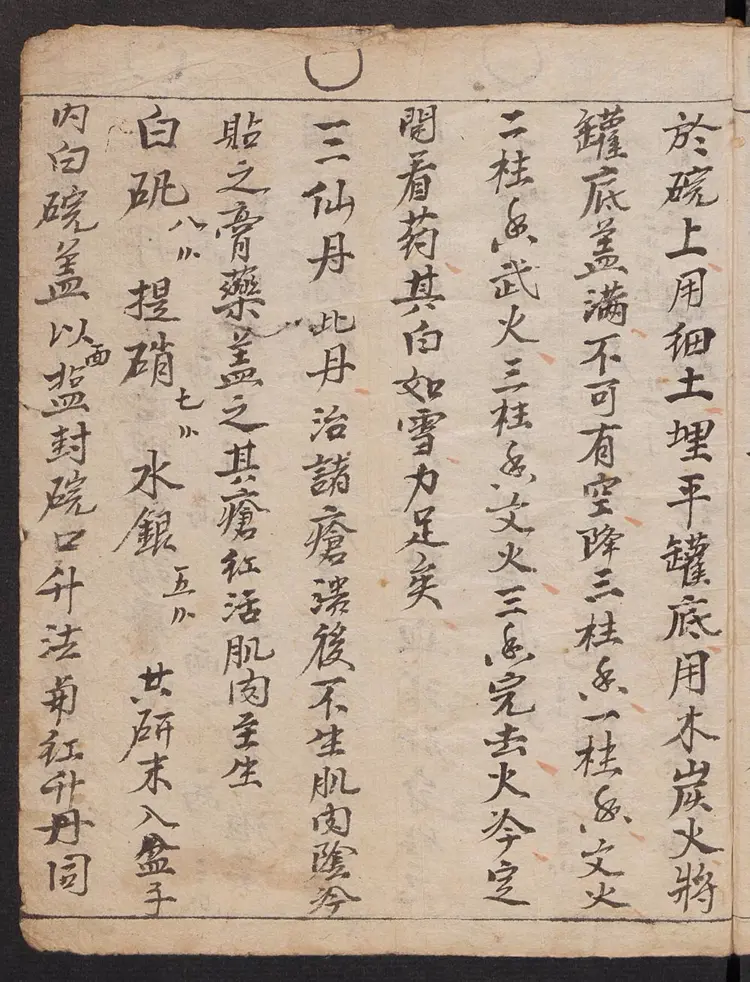 於碗上用细土埋平罐底用木炭火將
罐底盖满不可有空降三柱香一柱香文火
二柱香武火三柱香文火三香完去火冷定
開看药其白如雪力足矣
一三仙丹此丹治諸瘡潰後不生肌肉陰冷
貼之膏藥盖之其瘡红活肌肉至生
白矾八
提硝七
水銀五
共研末入盆子
内白碗盖以面盐封碗口升法前红升丹同